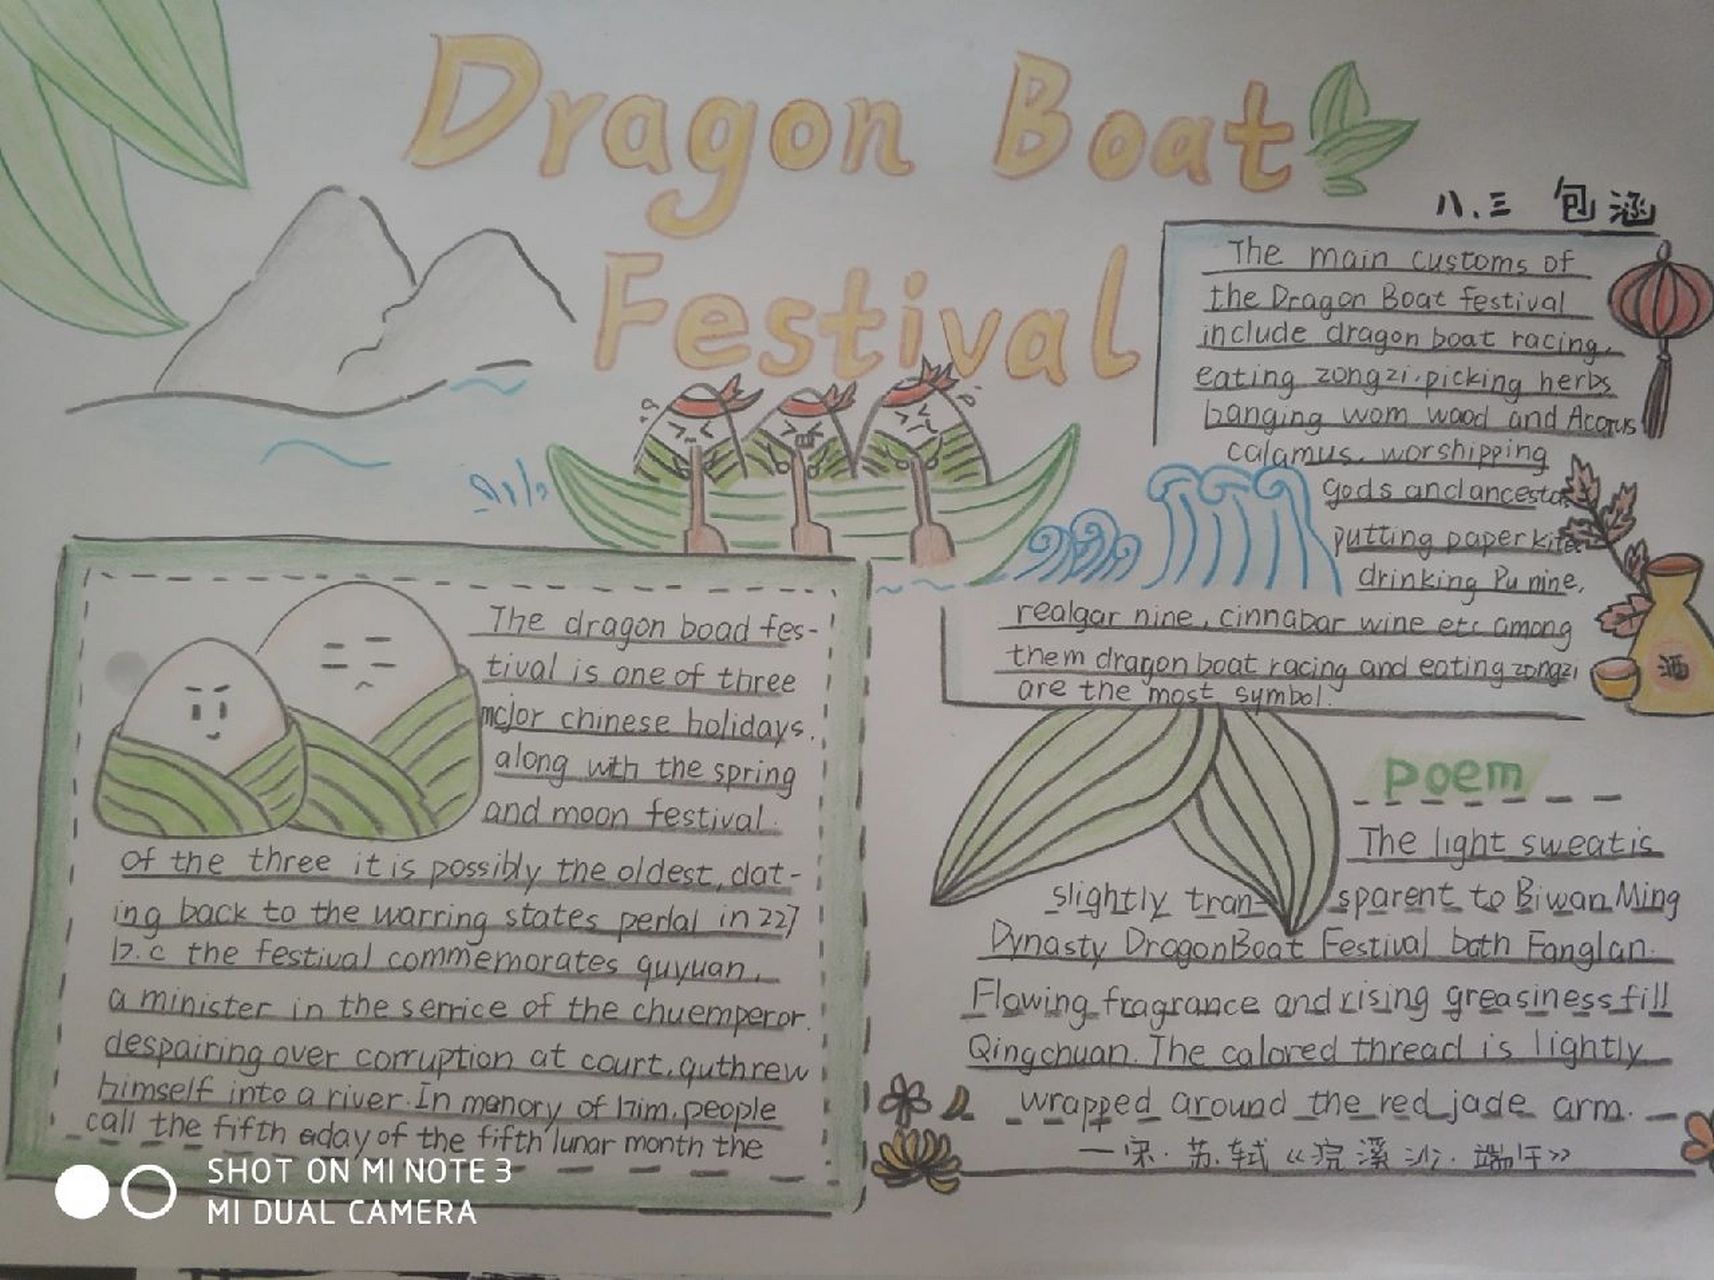 Dragon Boat
Festival
八.三 包涵
The main customs of
the Dragon Boat festival
include dragon boat racing,
eating zongzi.picking herbs
hanging wom wood and Acorus
calamus. worshipping
gods and ancesto
putting paper kite
drinking Pu nine,
realgar nine, cinnabar wine etc among
them dragon boat racing and eating zongzi
are the most symbol.
酒
The dragon boad fes-
tival is one of three
major chinese holidays.
along with the spring
and moon festival.
of the three it is possibly the oldest, dat-
ing back to the warring states perlal in 227
b.c the festival commemorates quyuan.
a minister in the serrice of the chuemperor.
despairing over corruption at court.quthrew
himself into a river.In menory of him.people
call the fifth aday of the fifth lunar month the
poem
The light sweat is
slightly transparent to Biwan Ming
Dynasty Dragon Boat Festival bath Fanglan.
Flowing fragrance and rising greasiness fill
Qingchuan. The calored thread is lightly
wrapped around the red jade arm.
一宋·苏.轼《浣溪沙·端午》
SHOT ON MI NOTE 3
MI DUAL CAMERA